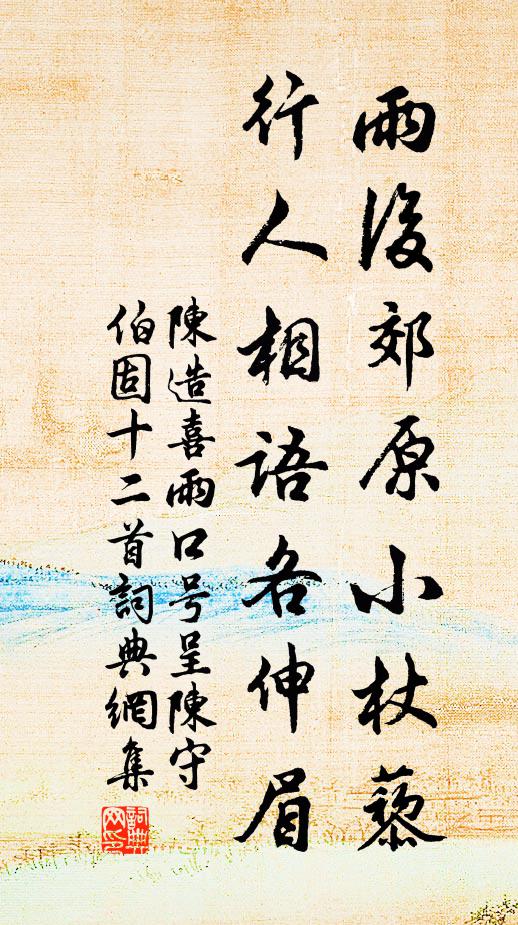 雨後郊原小杖藜
行人相語各伸眉
陳造喜雨口号呈陳守
伯固十二首詞典網集
詞典
网印